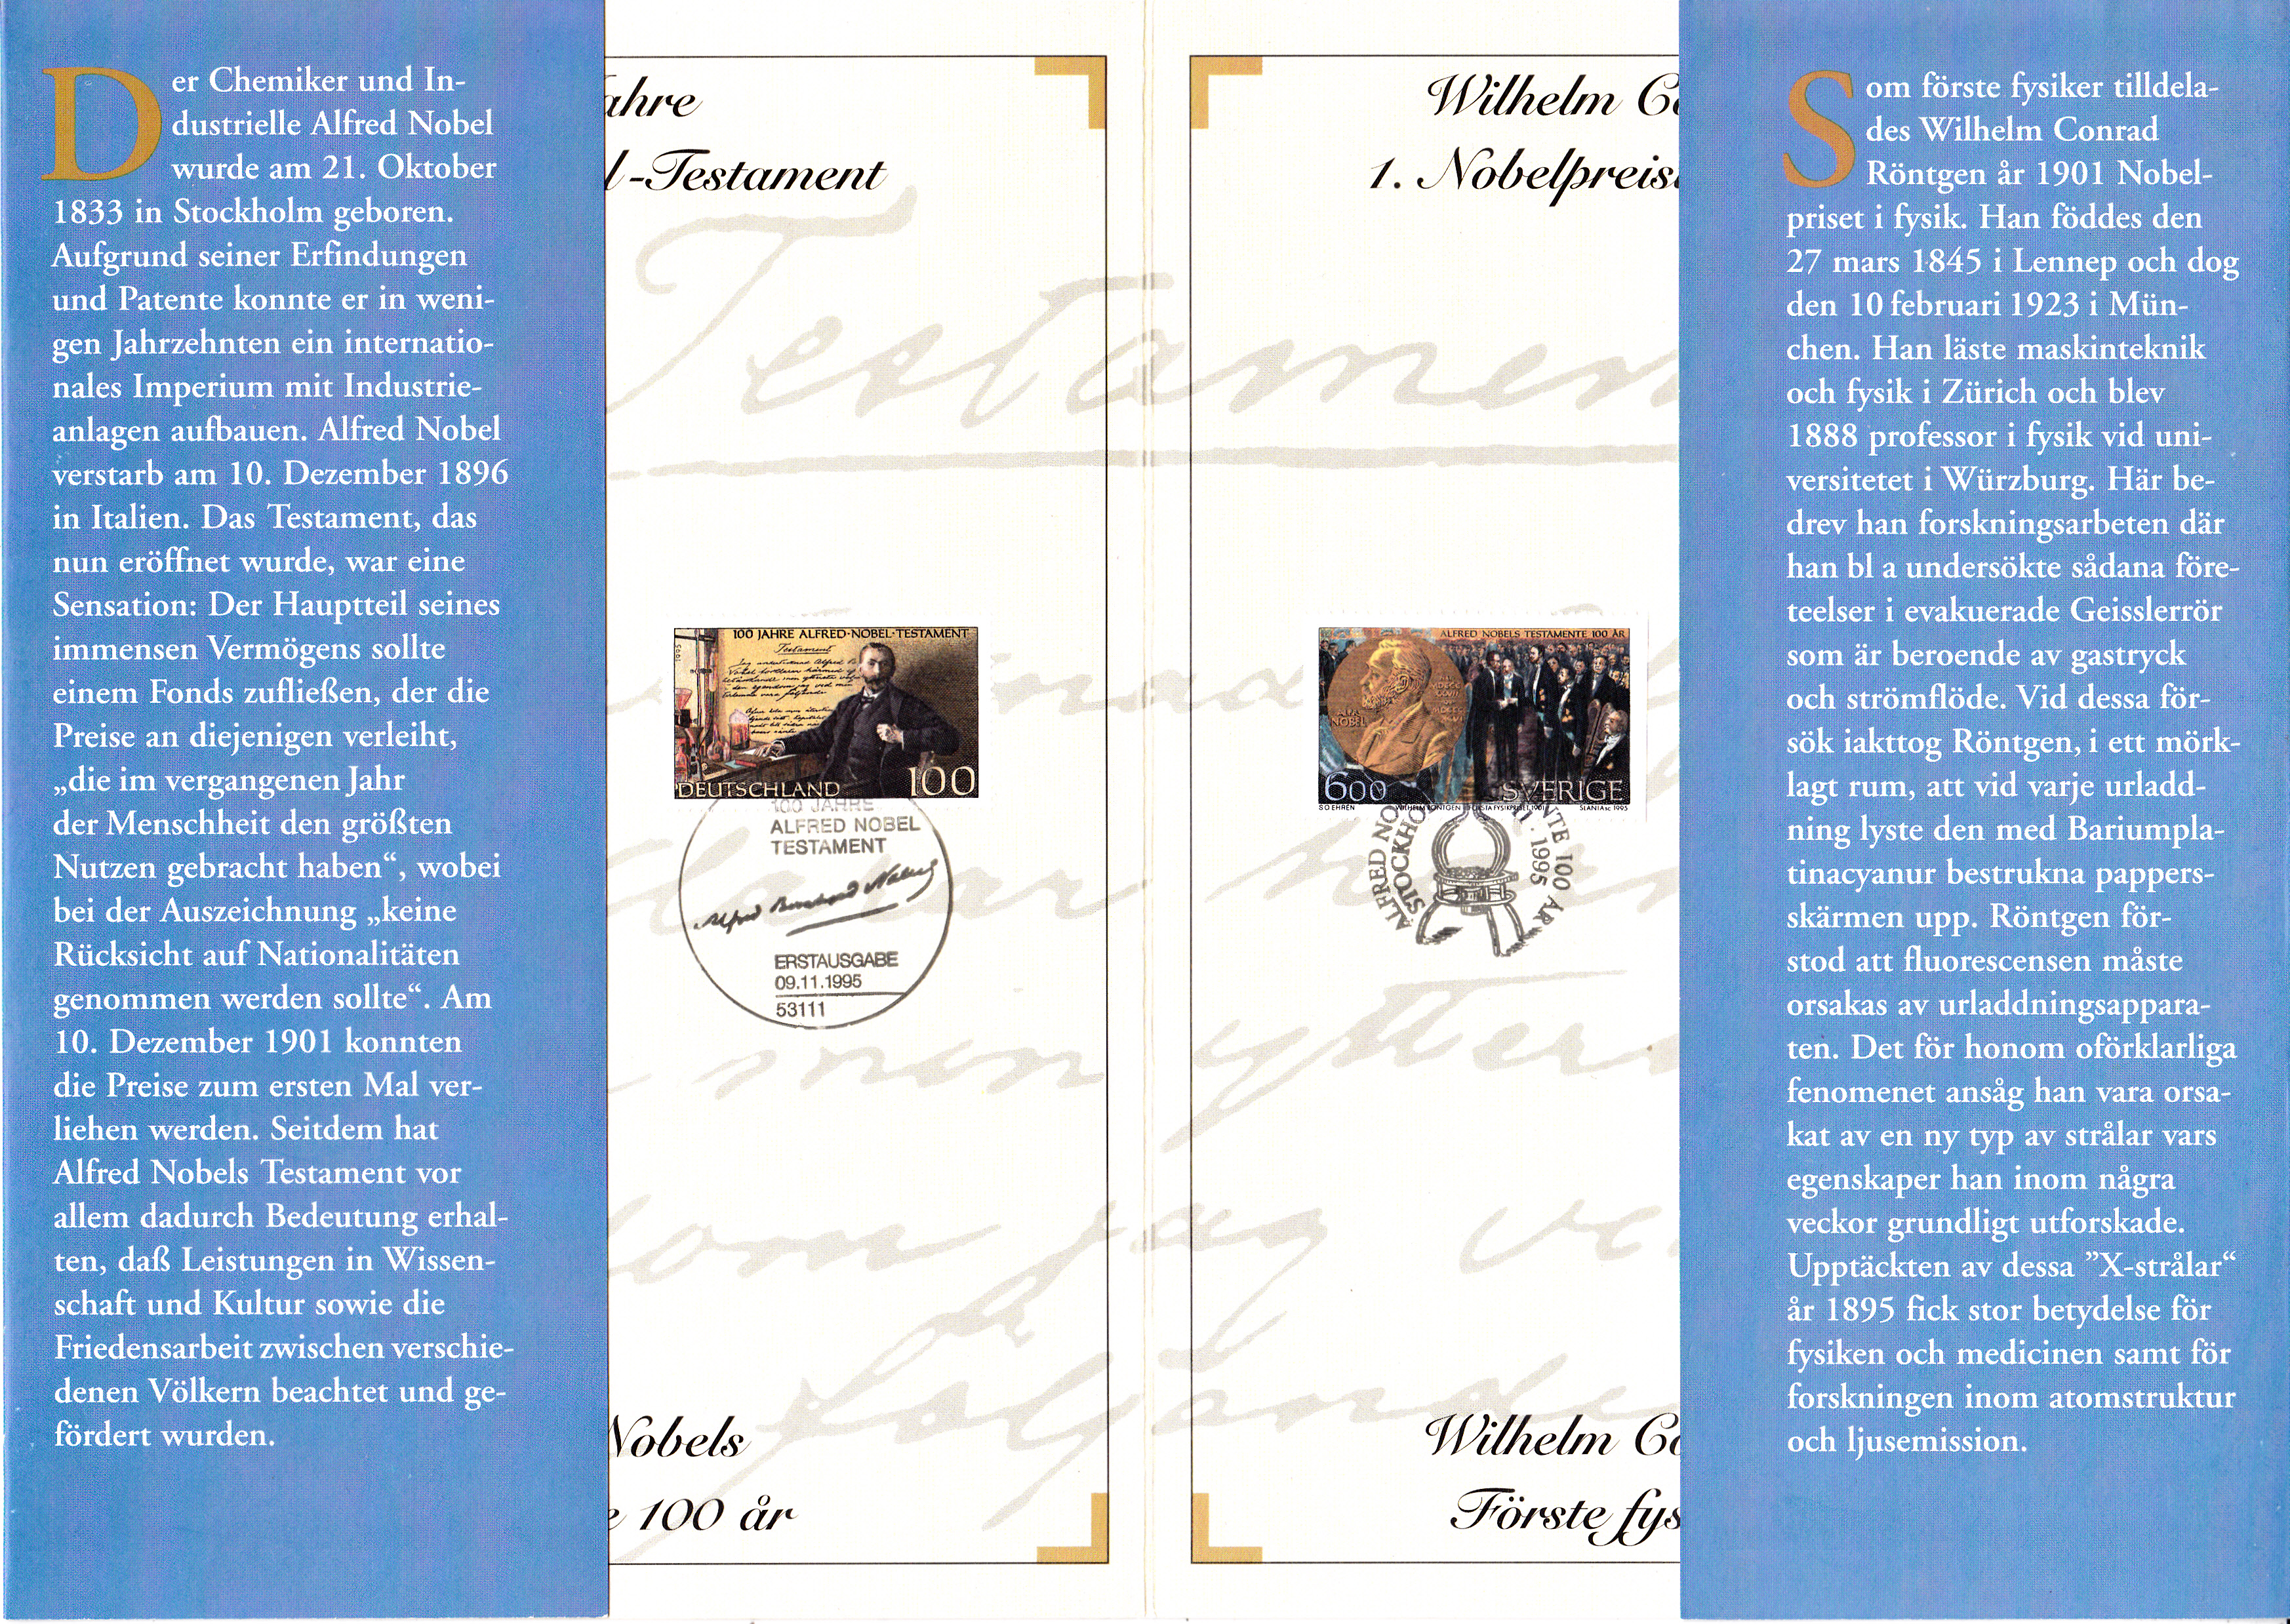 Der Chemiker und In-
dustrielle Alfred Nobel
wurde am 21. Oktober
1833 in Stockholm geboren.
Aufgrund seiner Erfindungen
und Patente konnte er in weni-
gen Jahrzehnten ein internatio-
nales Imperium mit Industrie-
anlagen aufbauen. Alfred Nobel
verstarb am 10. Dezember 1896
in Italien. Das Testament, das
nun eröffnet wurde, war eine
Sensation: Der Hauptteil seines
immensen Vermögens sollte
einem Fonds zufließen, der die
Preise an diejenigen verleiht,
„die im vergangenen Jahr
der Menschheit den größten
Nutzen gebracht haben“, wobei
bei der Auszeichnung „keine
Rücksicht auf Nationalitäten
genommen werden sollte“. Am
10. Dezember 1901 konnten
die Preise zum ersten Mal ver-
liehen werden. Seitdem hat
Alfred Nobels Testament vor
allem dadurch Bedeutung erhal-
ten, daß Leistungen in Wissen-
schaft und Kultur sowie die
Friedensarbeit zwischen verschie-
denen Völkern beachtet und ge-
fördert wurden.
ahre
l-Testament
Testament
100 JAHRE ALFRED-NOBEL-TESTAMENT
1995
Testament
DEUTSCHLAND 100
100 JAHRE
ALFRED NOBEL
TESTAMENT
Alfred Bernhard Nobel
ERSTAUSGABE
09.11.1995
53111
Nobels
e 100 år
Wilhelm Co
1. Nobelpreis
ALFRED NOBELS TESTAMENTE 100 ÅR
ALFR. NOBEL
600 SVERIGE
SO EHRÉN WILHELM RÖNTGEN FÖRSTA FYSIKPRISET 1901 SLANIA sc 1995
ALFRED NO NTE 100 ÅR
STOCKHO 11.1995
som jag
Wilhelm Co
Förste fys
Som förste fysiker tilldela-
des Wilhelm Conrad
Röntgen år 1901 Nobel-
priset i fysik. Han föddes den
27 mars 1845 i Lennep och dog
den 10 februari 1923 i Mün-
chen. Han läste maskinteknik
och fysik i Zürich och blev
1888 professor i fysik vid uni-
versitetet i Würzburg. Här be-
drev han forskningsarbeten där
han bl a undersökte sådana före-
teelser i evakuerade Geisslerrör
som är beroende av gastryck
och strömflöde. Vid dessa för-
sök iakttog Röntgen, i ett mörk-
lagt rum, att vid varje urladd-
ning lyste den med Bariumpla-
tinacyanur bestrukna pappers-
skärmen upp. Röntgen för-
stod att fluorescensen måste
orsakas av urladdningsappara-
ten. Det för honom oförklarliga
fenomenet ansåg han vara orsa-
kat av en ny typ av strålar vars
egenskaper han inom några
veckor grundligt utforskade.
Upptäckten av dessa ”X-strålar“
år 1895 fick stor betydelse för
fysiken och medicinen samt för
forskningen inom atomstruktur
och ljusemission.